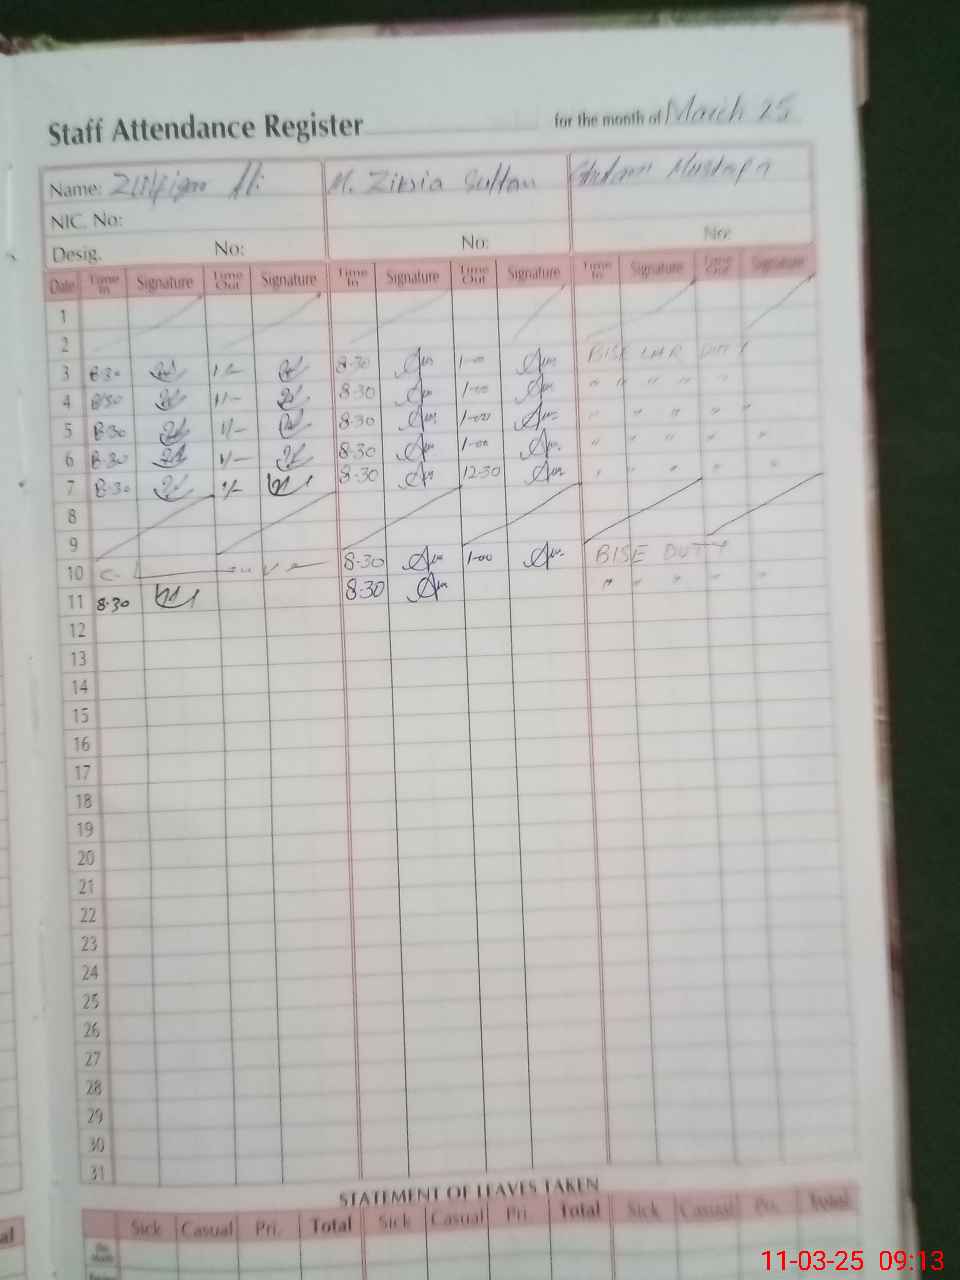 Staff Attendance Register for the month of March 25
Name: Ali M. Zikria Sultan Ghulam Mustafa
NIC. No:
Desig. No: No: No:
Date Time In Signature Time Out Signature Time In Signature Time Out Signature Time In Signature Time Out Signature
1
2
3 8-30 1/- 8-30 1-00 BISE LHR DUTY
4 8-30 1/- 8-30 1-00 " " " " "
5 8-30 1/- 8-30 1-00 " " " " "
6 8-30 1/- 8-30 1-00 " " " " "
7 8-30 1/- 8-30 12-30 " " " " "
8
9
10 8-30 1-00 BISE DUTY
11 8-30 8-30 " " " " "
12
13
14
15
16
17
18
19
20
21
22
23
24
25
26
27
28
29
30
31
STATEMENT OF LEAVES TAKEN
Sick Casual Pri. Total Sick Casual Pri. Total Sick Casual Pri. Total
11-03-25 09:13